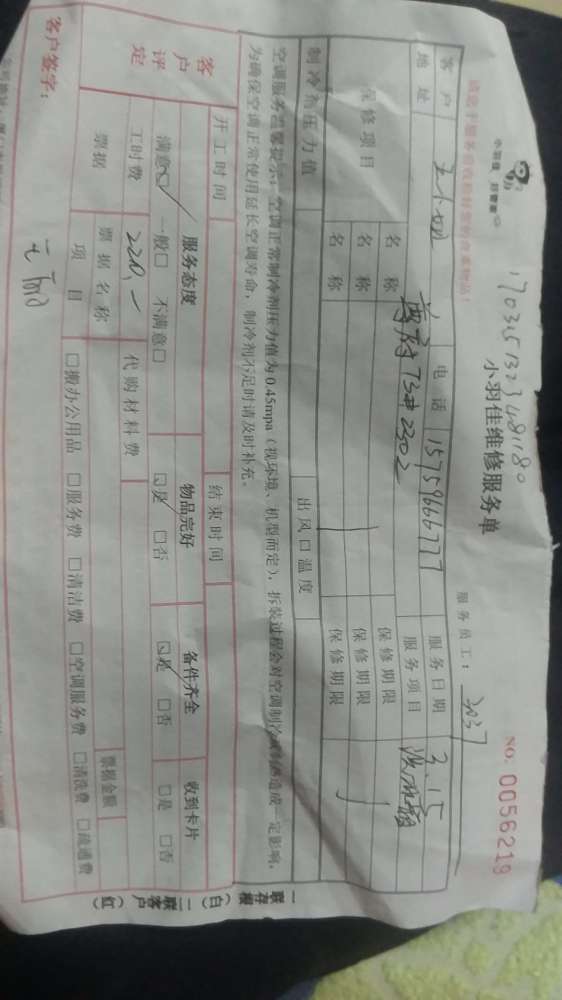 小羽佳 好管家
170315132348180
小羽佳维修服务单
NO: 0056219
服务员工: 3037
客户 王小姐 电话 15759666777 服务日期 3.15
地址 首府73#2302 服务项目
保修项目 名称 保修期限
名称 保修期限
名称 保修期限
制冷剂压力值 出风口温度
空调服务温馨提示: 空调正常制冷剂压力值为0.45mpa (视环境、机型而定), 拆装过程会对空调制冷剂造成一定影响,
为确保空调正常使用延长空调寿命, 制冷剂不足时请及时补充。
开工时间 结束时间
客户评定 服务态度 物品完好 备件齐全 收到卡片
满意□ 一般□ 不满意□ □是 □否 □是 □否 □是 □否
工时费 220.- 代购材料费
票据 票据名称 票据金额
项目 □搬办公用品 □服务费 □清洁费 □空调服务费 □清洗费 □疏通费
客户签字:
一联存根(白) 二联客户(红)